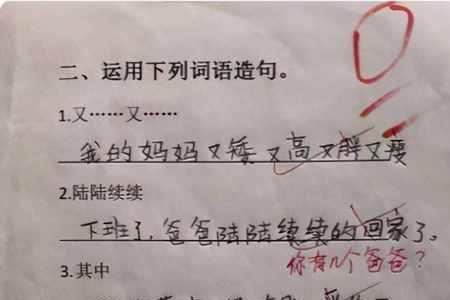 二、运用下列词语造句。
1.又……又……
我的妈妈又矮又高又胖又瘦
2.陆陆续续
下班了,爸爸陆陆续续的回家了。
你有几个爸爸?
3.其中